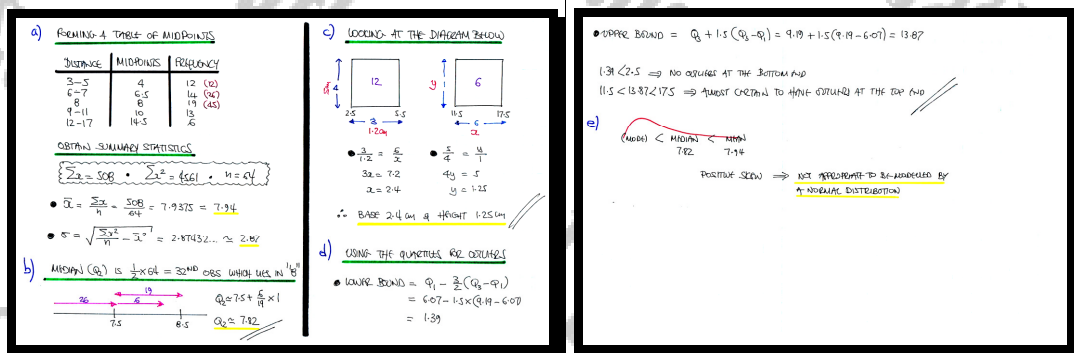 a) FORMING A TABLE OF MIDPOINTS
DISTANCE MIDPOINTS FREQUENCY
3-5 4 12 (12)
6-7 6.5 14 (26)
8 8 19 (45)
9-11 10 13
12-17 14.5 6
OBTAIN SUMMARY STATISTICS
Σx = 508 • Σx² = 4561 • n = 64
• x̄ = Σx/n = 508/64 = 7.9375 = 7.94
• σ = √(Σx²/n - x̄²) = 2.87432... ≃ 2.87
b) MEDIAN (Q₂) IS ½ × 64 = 32ND OBS WHICH LIES IN "8"
19
26 6
7.5 8.5
Q₂ ≃ 7.5 + 6/19 × 1
Q₂ ≃ 7.82
c) LOOKING AT THE DIAGRAM BELOW
12 6
4 y 1
2.5 5.5 11.5 17.5
3 6
1.2cm x
• 3/1.2 = 6/x • 5/4 = y/1
3x = 7.2 4y = 5
x = 2.4 y = 1.25
∴ BASE 2.4 cm & HEIGHT 1.25 cm
d) USING THE QUARTILES FOR OUTLIERS
• LOWER BOUND = Q₁ - 3/2 (Q₃ - Q₁)
= 6.07 - 1.5 × (9.19 - 6.07)
= 1.39
• UPPER BOUND = Q₃ + 1.5 (Q₃ - Q₁) = 9.19 + 1.5 (9.19 - 6.07) = 13.87
1.39 < 2.5 ⇒ NO OUTLIERS AT THE BOTTOM END
11.5 < 13.87 < 17.5 ⇒ ALMOST CERTAIN TO HAVE OUTLIERS AT THE TOP END
e) (MODE) < MEDIAN < MEAN
7.82 7.94
POSITIVE SKEW ⇒ NOT APPROPRIATE TO BE MODELLED BY
A NORMAL DISTRIBUTION